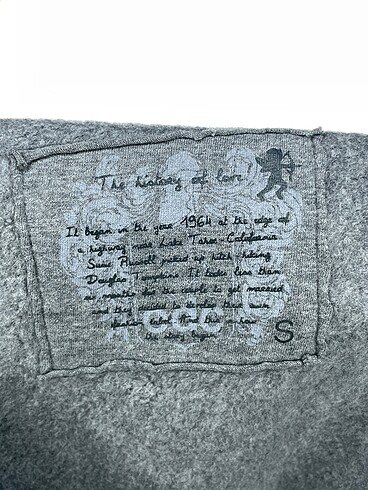 The history of love!
It began in the year 1964 at the edge of
a highway near Lake Tahoe - California.
Susi Russell picked up hitch-hiking
Douglas Tompkins. It takes less than
six months for the couple to get married
and they decided to develop their own
fashion label. And this is how
the story began.
S